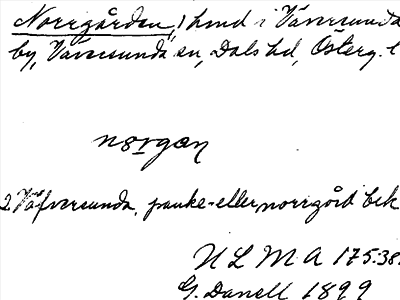 Norrgården, 1 hmd i Väversunda
by, Väversunda sn, Dals hd, Österg. l
norgæn
2. Väfversunda, panke- eller norrgård bek
ULMA 175:38.
G. Danell 1899